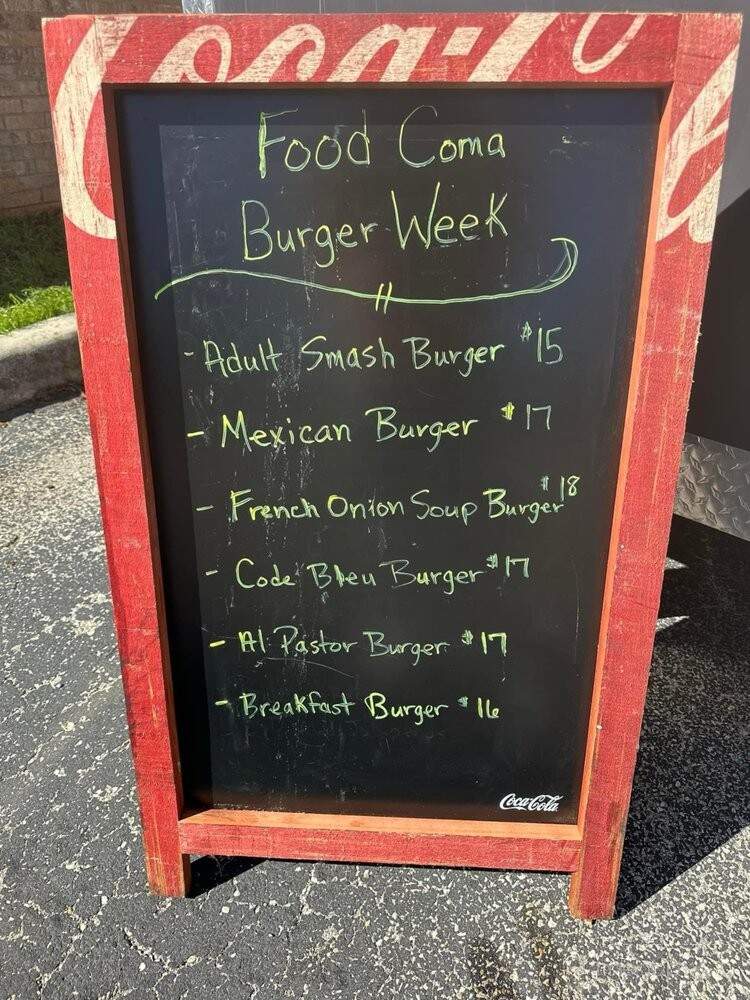 Coca-Cola
Food Coma
Burger Week
- Adult Smash Burger $15
- Mexican Burger $17
- French Onion Soup Burger $18
- Code Bleu Burger $17
- Al Pastor Burger $17
- Breakfast Burger $16
Coca-Cola